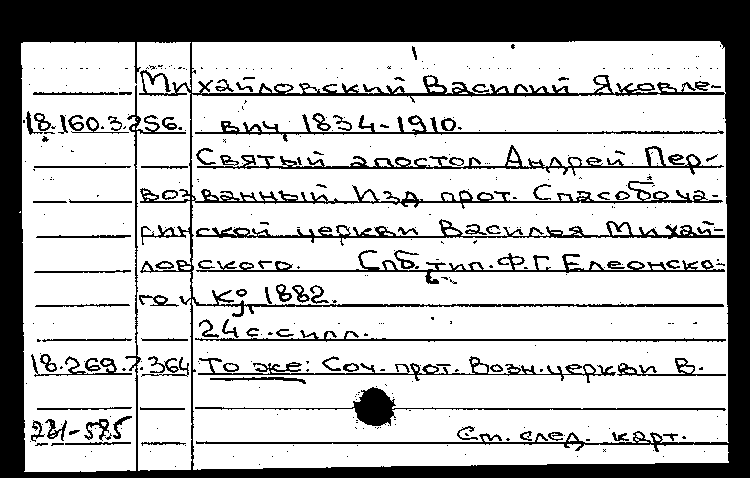 Михайловский, Василий Яковле-
18.160.3.256. вич, 1834-1910.
Святый апостол Андрей Пер-
возванный. Изд. прот. Спасобоча-
ринской церкви Василья Михай-
ловского. Спб. тип. Ф.Г. Елеонско-
го и Кº, 1882.
24 с. с илл.
18.269.7.364. То же: Соч. прот. Возн. церкви В.
281-585 См. след. карт.